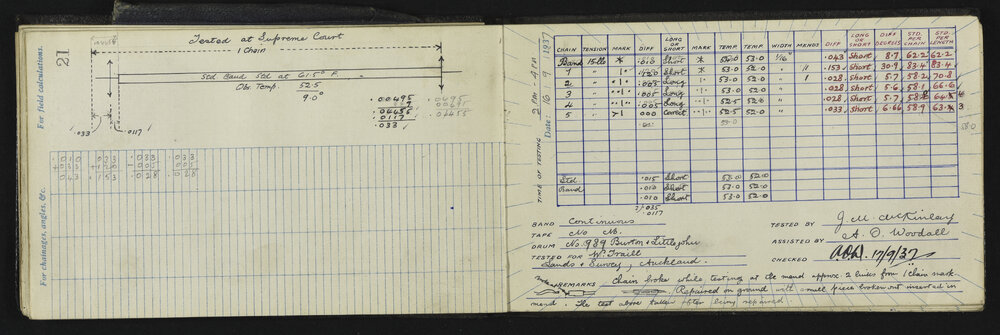 21
For field calculations.
For chainages, angles, &c.
Tested at Supreme Court
1 Chain
Std Band Std at 61.5° F.
Obs. Temp. 52.5
9.0°
.00495
.0117
.033
.033
.0117
.010 .033 .033
.033 .120 .005 .005
.043 .153 .028 .028
TIME OF TESTING 2 PM - 4 PM
Date: 16 / 9 / 1937
CHAIN TENSION MARK DIFF LONG OR SHORT MARK TEMP. TEMP. WIDTH MENDS DIFF LONG OR SHORT DIFF DEGREES STD. PER CHAIN STD. PER LENGTH
Band 15 lbs .010 Short 53.0 1/16" .043 Short 8.7 62.2 62.2
1 " .120 Short 53.0 52.0 " 11 .153 Short 30.9 83.4 83.4
2 " .005 Long 53.0 52.0 " 1 .028 Short 5.6 58.2 70.8
3 " .005 Long 53.0 52.0 " .028 Short 5.7 58.1 66.6
4 " .005 Long 52.5 52.0 " .028 Short 5.6
5 " .000 Correct 52.5 52.0 " .033 Short 6.66 58.9
Std .015 Short 53.0 52.0
Band .010 Short 53.0 52.0
.010 Short 53.0 52.0
3/.035
.0117
BAND Continuous
TAPE No No.
DRUM No. 989 Burton & Littlejohn
TESTED FOR W. Traill
Lands & Survey, Auckland.
TESTED BY J. M. McKinlay
ASSISTED BY A. O. Woodall
CHECKED 17/9/37
REMARKS Chain broke while testing at the mend approx. 2 links from 1 chain mark.
Repaired on ground with small piece broken out inserted in
mend. The test above taken after being repaired.